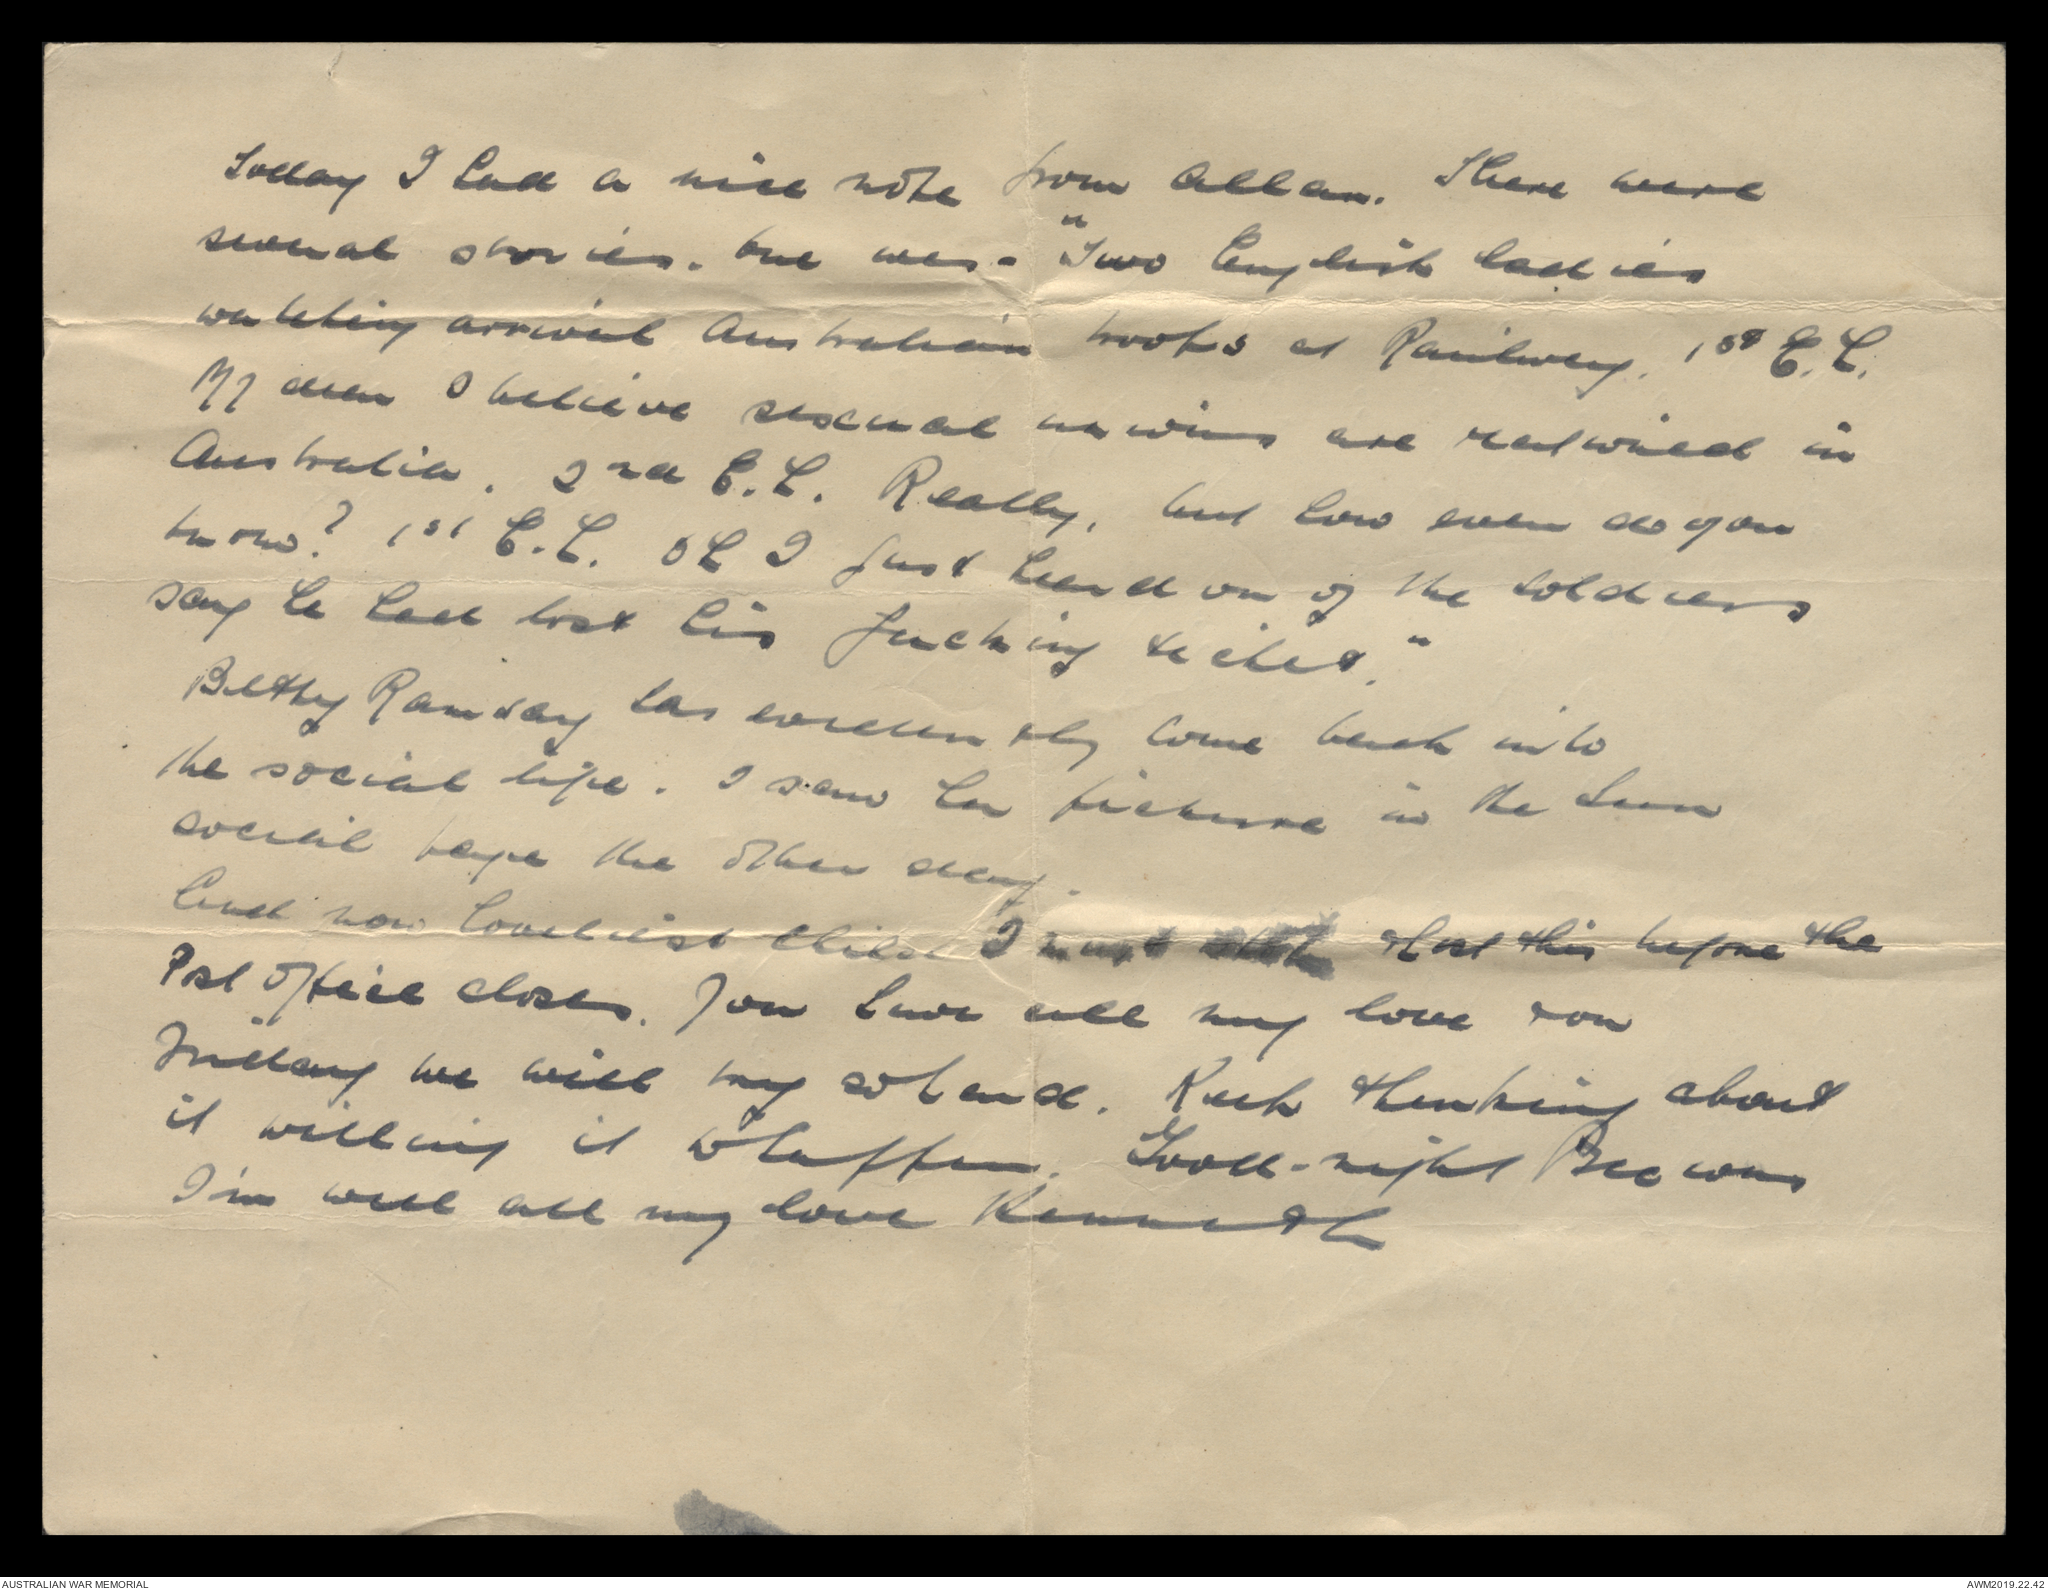 Today I had a nice note from Allan. There were
several stories. One was - "Two English ladies
watching arrival Australian troops at Railway. 1st E.L.
My dear I believe sexual unions are required in
Australia. 2nd E.L. Really, but how ever do you
know? 1st E.L. Oh I just heard on of the soldiers
say he had lost his fucking ticket."
Betty Ramsay has evidently come back into
the social life. I saw her picture in the Sun
social page the other day.
And now loveliest child I must post this before the
Post Office closes. You have all my love
Friday we will try and. Keep thinking about
it willing it to happen. Good-night
I'm well all my love Kenneth
AUSTRALIAN WAR MEMORIAL
AWM2019.22.42